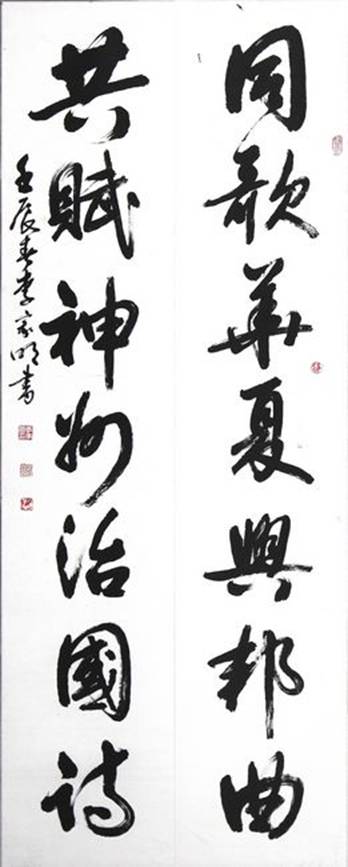 同歌華夏興邦曲
共賦神州治國詩
壬辰春李家明書